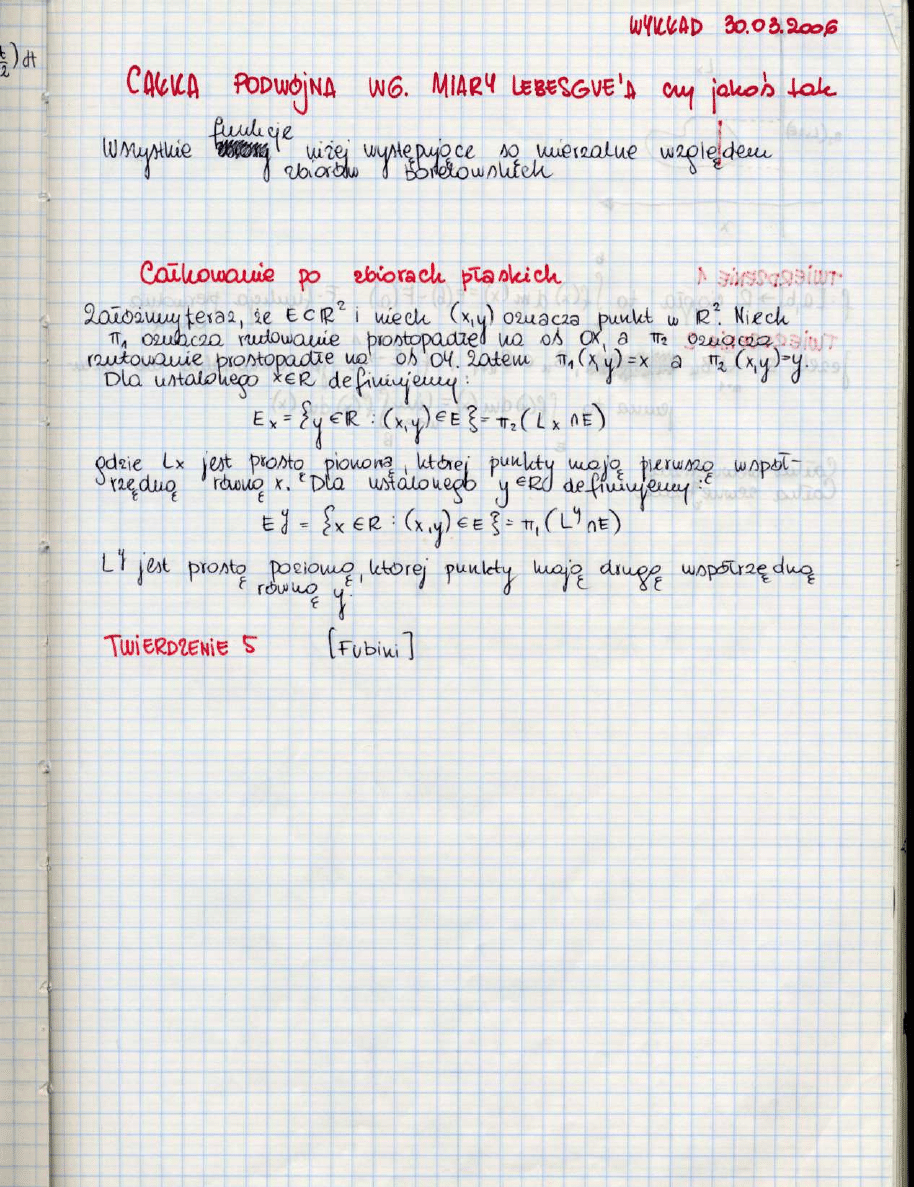 WYKŁAD 30.03.2006
t/2) dt
CAŁKA PODWÓJNA WG. MIARY LEBESGUE'A czy jakoś tak
funkcje
Wszystkie niżej występujące są mierzalne względem
zbiorów borelowskich
Całkowanie po zbiorach płaskich
Załóżmy teraz, że E⊂ℝ² i niech (x,y) oznacza punkt w ℝ². Niech
π₁ oznacza rzutowanie prostopadłe na oś OX, a π₂ oznacza
rzutowanie prostopadłe na oś OY. Zatem π₁(x,y)=x a π₂(x,y)=y.
Dla ustalonego x∈ℝ definiujemy:
Eₓ = {y∈ℝ : (x,y)∈E} = π₂(Lₓ∩E)
gdzie Lx jest prostą pionową, której punkty mają pierwszą współ-
rzędną równą x. Dla ustalonego y∈ℝ definiujemy:
E^y = {x∈ℝ : (x,y)∈E} = π₁(L^y∩E)
L^y jest prostą poziomą, której punkty mają drugą współrzędną
równą y.
TWIERDZENIE 5 [Fubini]